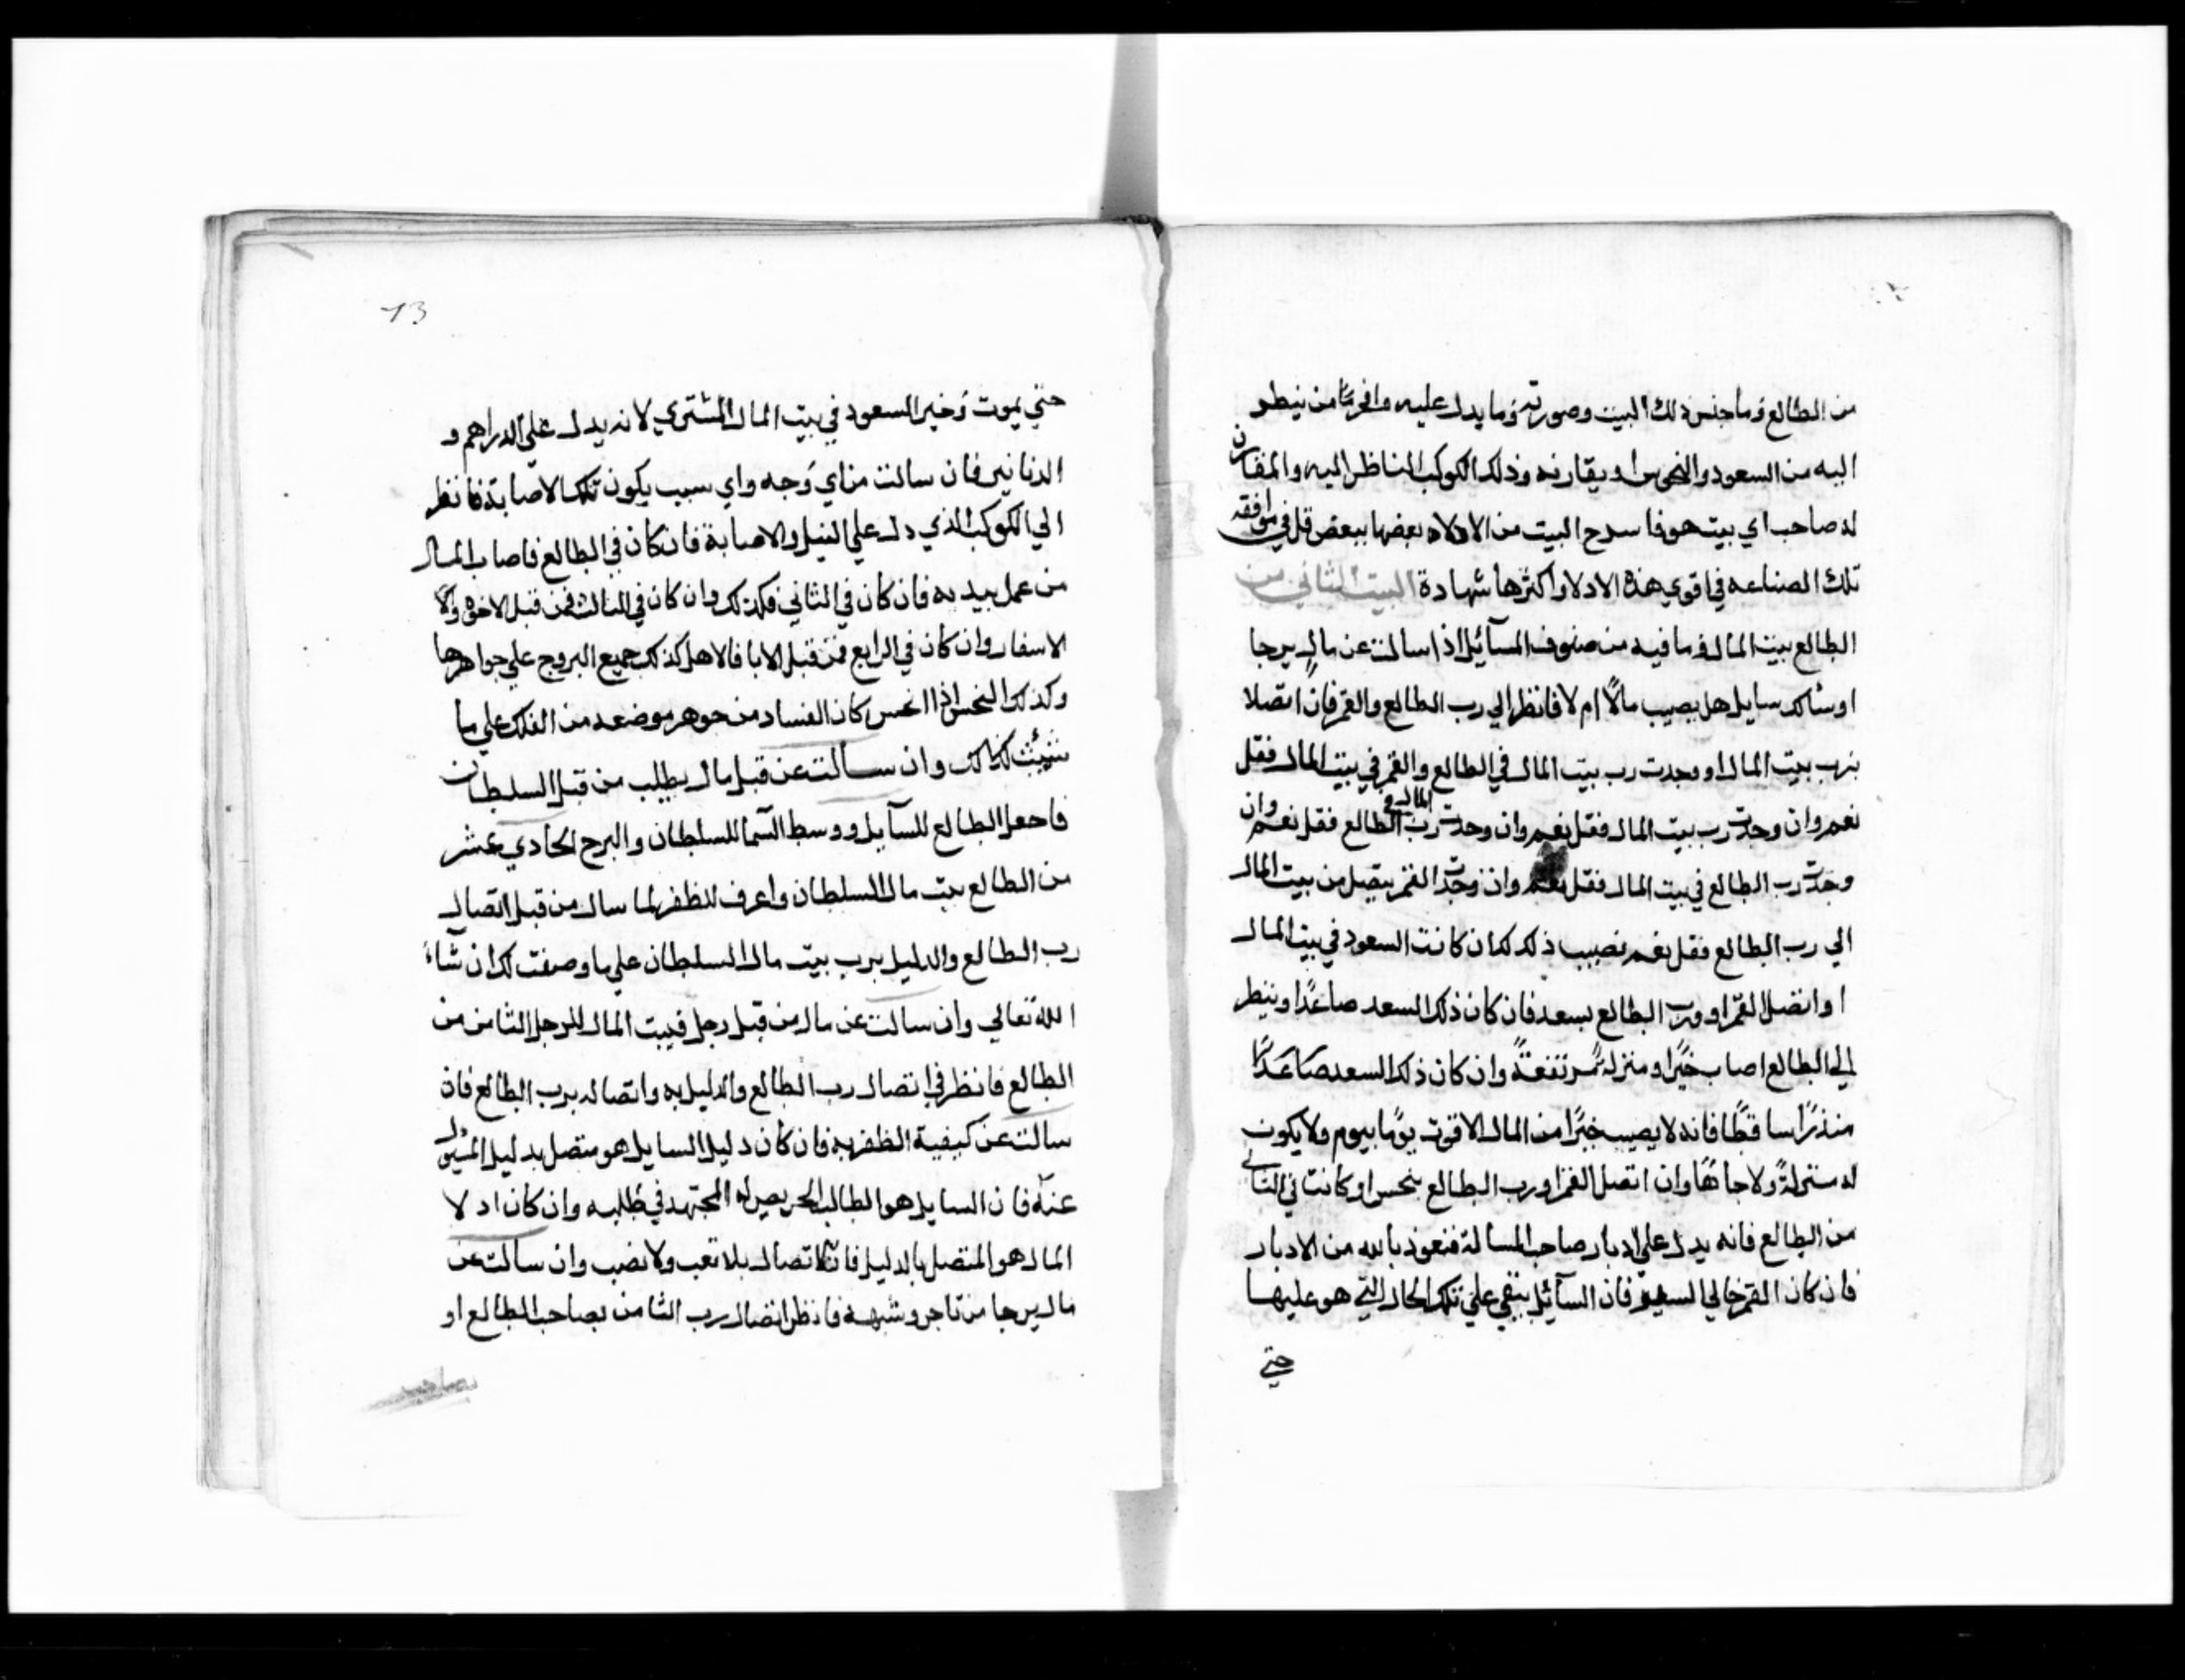 من الطالع وما جنس ذلك البيت وصورته وما يدل عليه وافهم من ينظر
اليه من السعود والنحوس او يقارنه وذلك الكوكب المناظر اليه والمقارن
له صاحب اي بيت هو فا سرح البيت من الادلاء بعضها ببعض قل في موافقه
تلك الصناعه في اقوي هذه الادلا واكثرها شهادة البيت الثاني من
الطالع بيت المال وما فيه من صنوف المسآئيل اذا سالت عن مال يرجا
او سٔالك سايل هل يصيب مالًا ام لا فانظر الي رب الطالع والقمر فان اتصلا
برب بيت المال او وجدت رب بيت المال في الطالع والقمر في بيت المال فقل
نعم وان وجدت رب بيت المال فقل نعم وان وجدت رب المال في الطالع فقل نعم وان
وجدت رب الطالع في بيت المال فقل نعم وان وجدت القمر يتصل من بيت المال
الي رب الطالع فقل نعم تصيب ذلك كان كانت السعود في بيت المال
او اتصل القمر او ورب الطالع بسعد فان كان ذلك السعد صاعدًا وينظر
الي الطالع اصاب خيرًا ومنزلة ثم رتفعةً وان كان ذلك السعد صاعدًا
منذرًا ساقطًا فانه لا يصيب خيرًا من المال الا قوت يومًا بيوم ولا يكون
له منزلةً ولا جاهًا وان اتصل القمر او رب الطالع بنحس او كانت في الثاني
من الطالع فانه يدل علي ادبار صاحب المسالة فنعوذ بالله من الادبار
فان كان القمر خالي السير فان السآئيل يبقي علي تلك الحال التي هو عليها
حتي
73
حتي يموت وخير السعود في بيت المال المشتري لانه يدل علي الدراهم و
الدنانير فان سالت من اي وجه واي سبب يكون تلك الاصابة فانظر
الي الكوكب الذي دل علي النيل والاصابة فان كان في الطالع فاصاب المال
من عمل بيديه فان كان في الثاني فكذلك وان كان في الثالث فمن قبل الاخوة ولا
الاسفار وان كان في الرابع فمن قبل الابا فالاهل كذلك جميع البروج علي جواهرها
وكذلك النحس اذا انحس كان الفساد من جوهر موضعه من الفلك علي ما
كذالك وان سالت عن قبل مال يطلب من قبل السلطان
فاجعل الطالع للسآيل ووسط السما للسلطان والبرج الحادي عشر
من الطالع بيت مال السلطان واعرف للظفر لما سال من قبل اتصال
رب الطالع والدليل برب بيت مال السلطان علي ما وصفت لك ان شاء
الله تعالي وان سالت عن مال من قبل رجل فبيت المال للرجل الثامن من
الطالع فانظر في اتصال رب الطالع والدليل به واتصاله برب الطالع فان
سالت عن كيفية الظفر به فان كان دليل السايل هو متصل بدليل المسؤل
عنه فان السايل هو الطالب الحريص له المجتهد في طلبه وان كان ادلا
المال هو المتصل بالدليل فان الاتصال بلا تعب ولا نصب وان سالت عن
مال يرجا من تاجر وشبهه فانظر اتصال رب الثامن بصاحب الطالع او
بصاحب